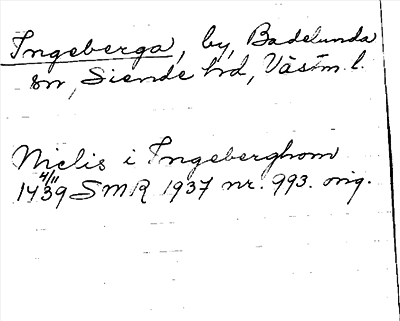 Ingeberga, by, Badelunda
sn, Siende hd, Västm. l.
Niclis i Ingeberghom
4/11
1439 SMR 1937 nr. 993. orig.